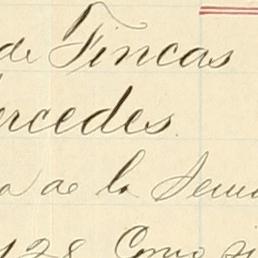 de Fincas
ercedes.
a de la Sema
128 Como si